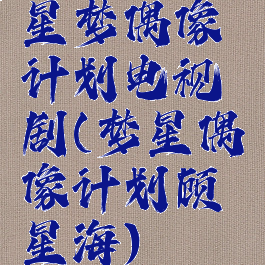 星梦偶像
计划电视
剧(梦星偶
像计划顾
星海)